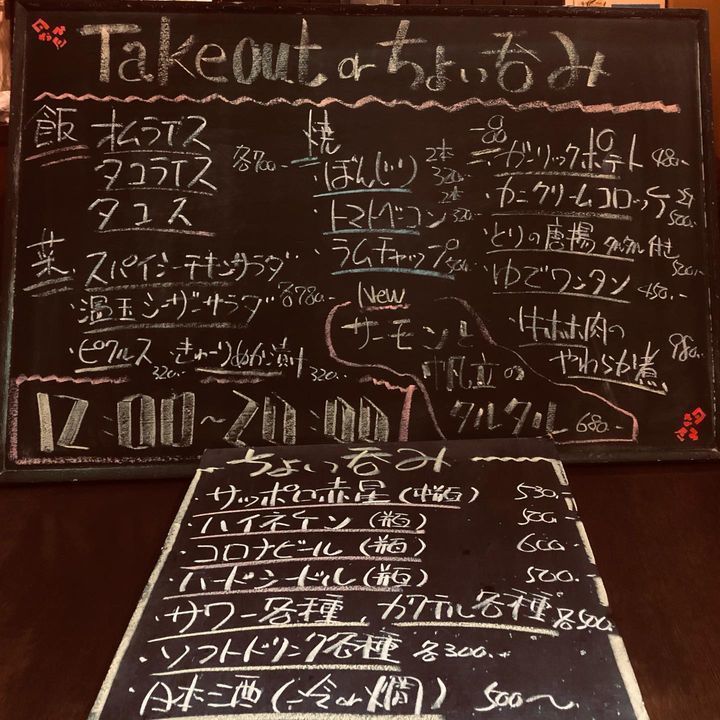 Takeout or ちょい呑み
飯 オムライス
タコライス 各700.-
タコス
菜 スパイシーチキンサラダ
温玉シーザーサラダ 各780.-
・ピクルス 320.- きゅーりぬか漬け 320.-
焼
・ぼんじり 2本 320.-
・トマトベーコン 2本 320.-
ラムチャップ
New
サーモンと
帆立の
タルタル 680.-
一品
・ガーリックポテト 480.-
・カニクリームコロッケ 2ヶ 500.-
・とりの唐揚 タルタル付き 500.-
・ゆでワンタン 450.-
・牛ホホ肉の
やわらか煮 980.-
12:00〜20:00
ちょい呑み
・サッポロ赤星(中瓶) 530.-
・ハイネケン(瓶) 500.-
・コロナビール(瓶) 600.-
・ハードシードル(瓶) 500.-
・サワー各種、カクテル各種 各500.-
・ソフトドリンク各種 各300.-
・日本酒(冷or燗) 500〜